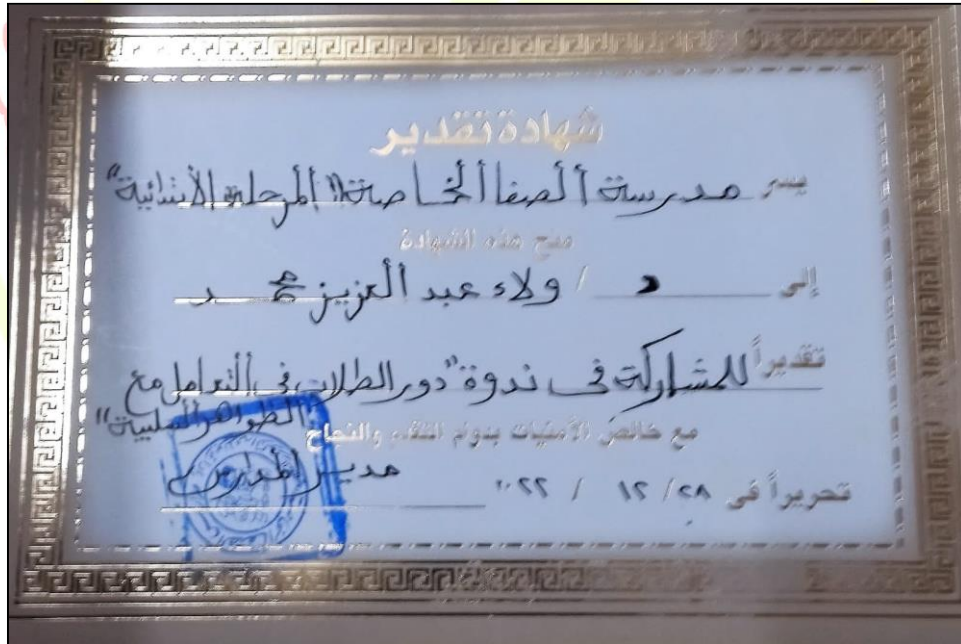 شهادة تقدير
يسر مدرسة الصفا الخاصة "المرحلة الابتدائية"
منح هذه الشهادة
إلى د / ولاء عبد العزيز محمد
تقديراً للمشاركة في ندوة "دور الطلاب في التعامل مع
الظواهر السلبية"
مع خالص الأمنيات بدوام التقدم والنجاح
تحريراً فى ٢٨ / ١٢ / ٢٠٢٢ مدير المدارس